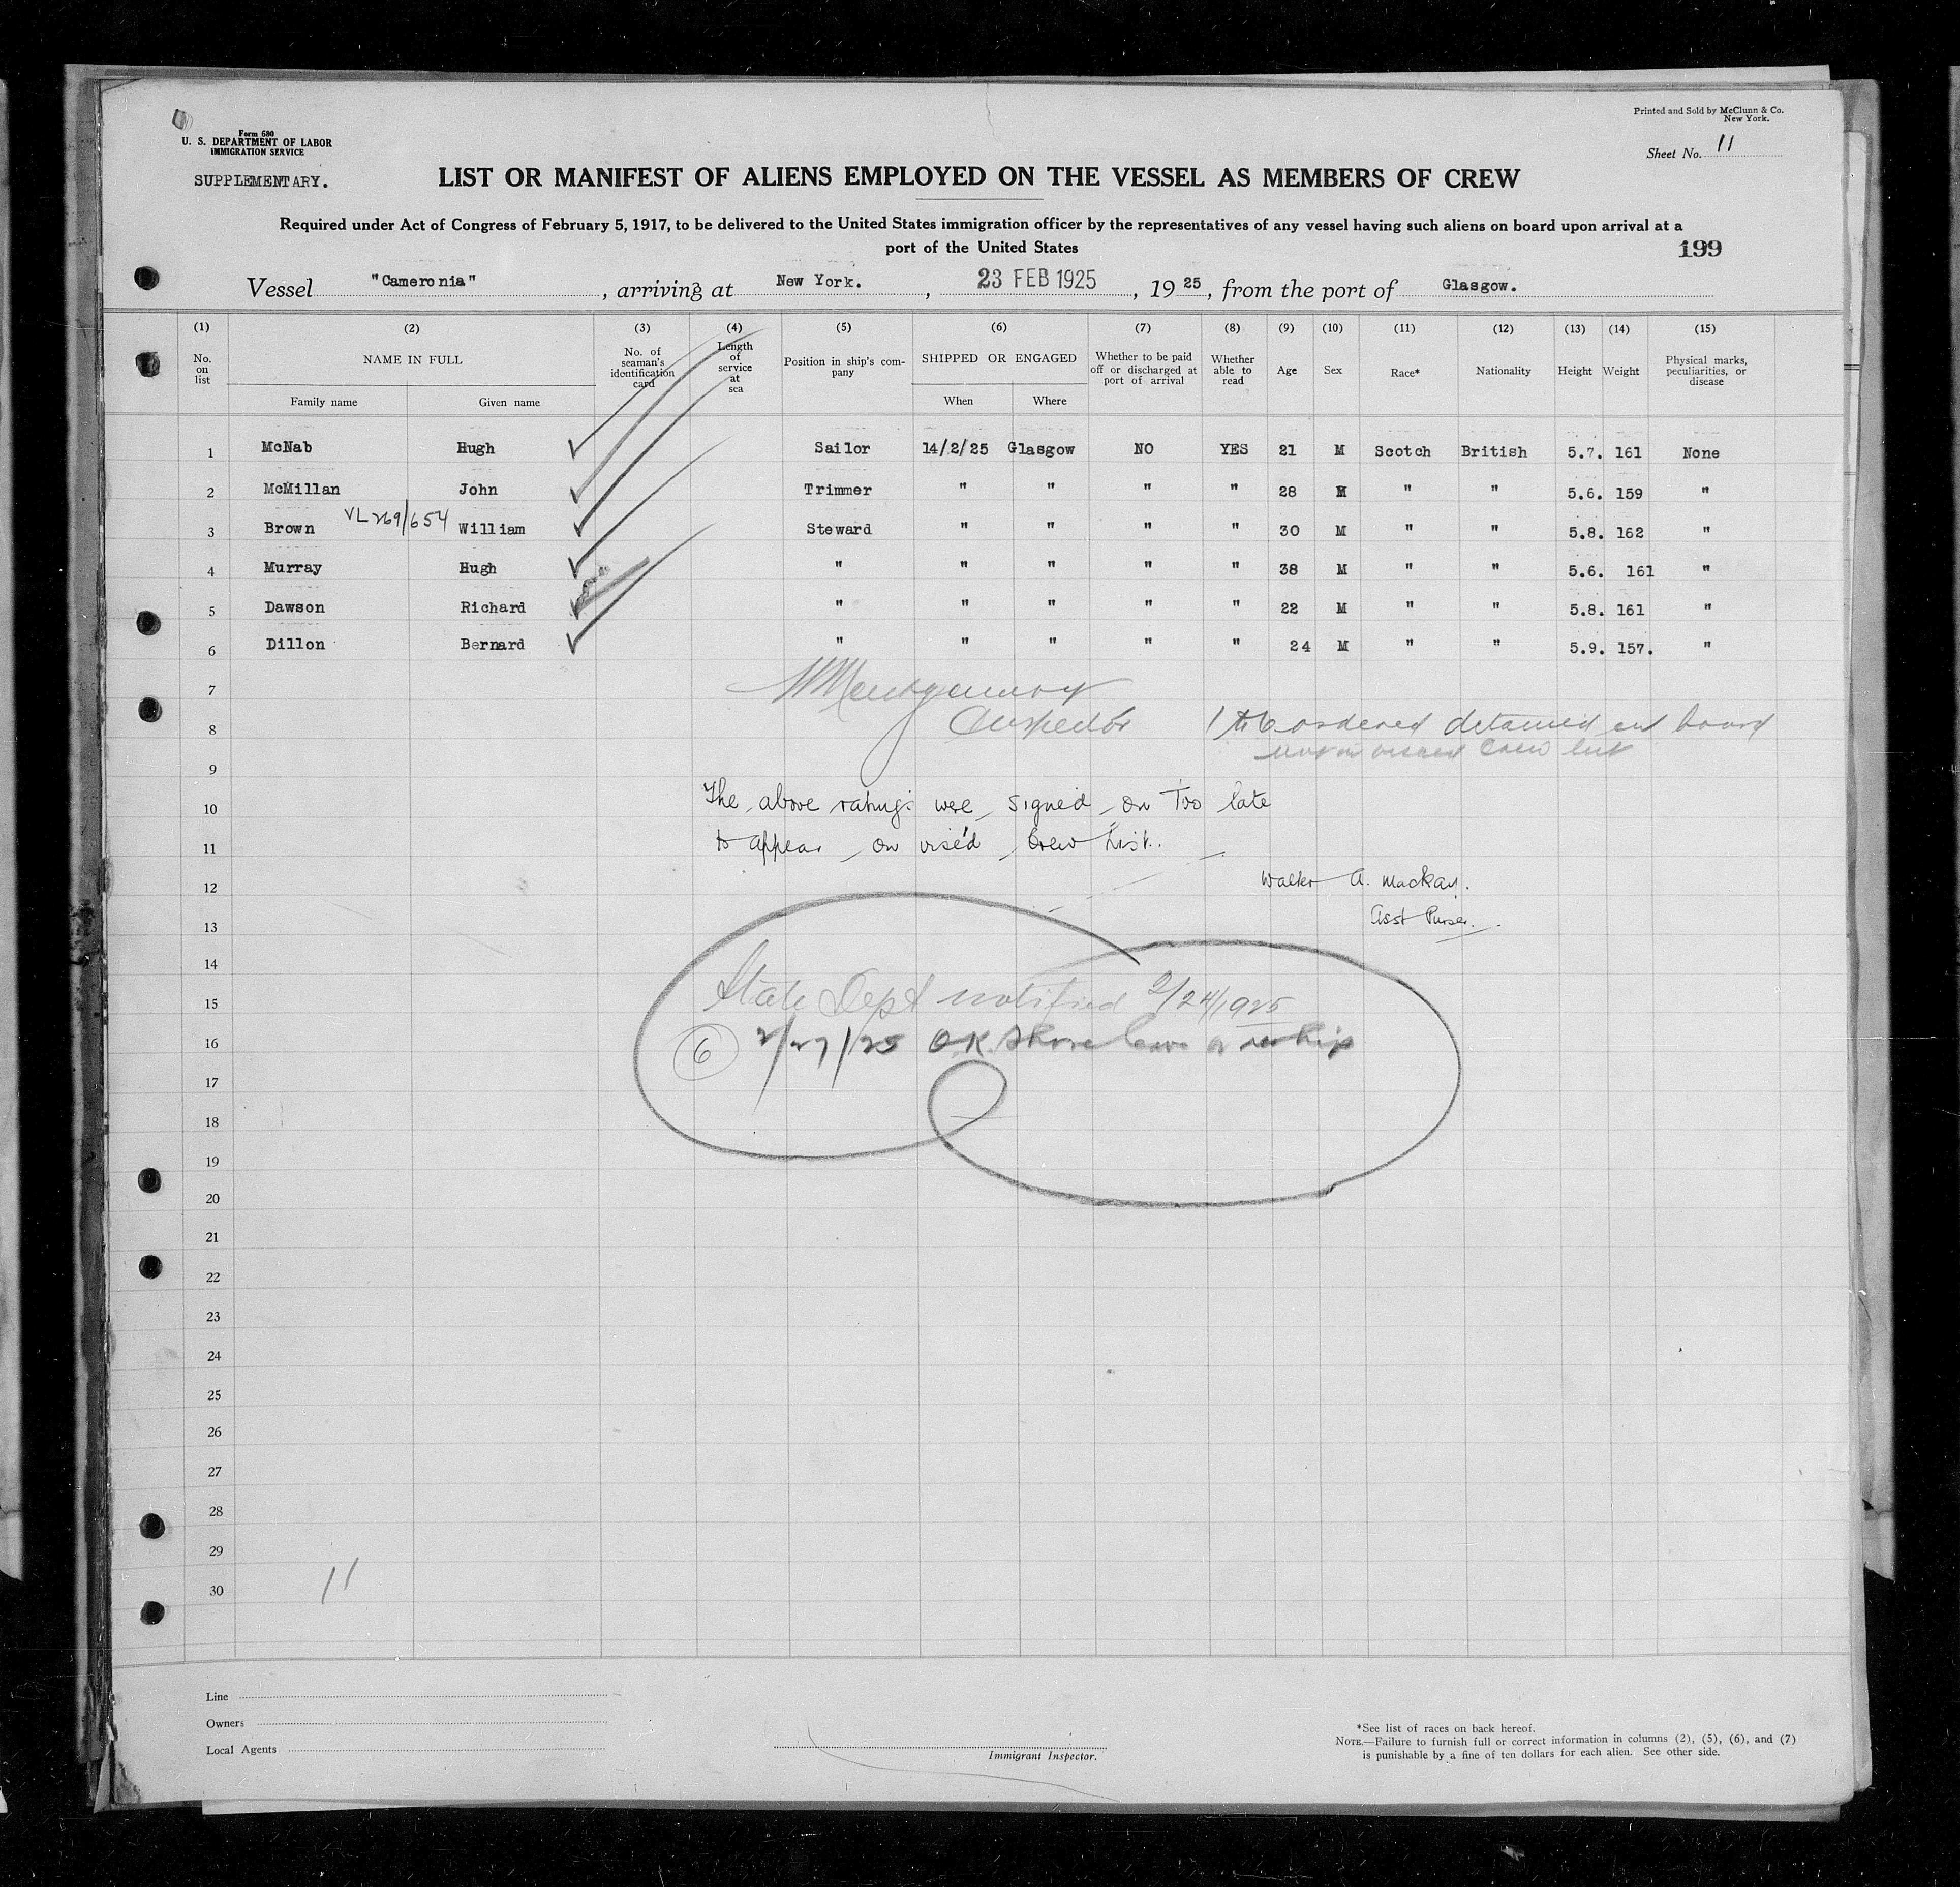 Form 680
U. S. DEPARTMENT OF LABOR
IMMIGRATION SERVICE
SUPPLEMENTARY.
Printed and Sold by McClunn & Co.
New York.
Sheet No. 11
LIST OR MANIFEST OF ALIENS EMPLOYED ON THE VESSEL AS MEMBERS OF CREW
Required under Act of Congress of February 5, 1917, to be delivered to the United States immigration officer by the representatives of any vessel having such aliens on board upon arrival at a
port of the United States
199
Vessel "Cameronia", arriving at New York., 23 FEB 1925, 1925, from the port of Glasgow.
(1) (2) (3) (4) (5) (6) (7) (8) (9) (10) (11) (12) (13) (14) (15)
No. on list
NAME IN FULL
Family name
Given name
No. of seaman's identification card
Length of service at sea
Position in ship's company
SHIPPED OR ENGAGED
When
Where
Whether to be paid off or discharged at port of arrival
Whether able to read
Age
Sex
Race*
Nationality
Height
Weight
Physical marks, peculiarities, or disease
1 McNab Hugh ✓ Sailor 14/2/25 Glasgow NO YES 21 M Scotch British 5.7. 161 None
2 McMillan John ✓ Trimmer " " " " 28 M " " 5.6. 159 "
3 Brown VL 269/654 William ✓ Steward " " " " 30 M " " 5.8. 162 "
4 Murray Hugh ✓ " " " " " 38 M " " 5.6. 161 "
5 Dawson Richard ✓ " " " " " 22 M " " 5.8. 161 "
6 Dillon Bernard ✓ " " " " " 24 M " " 5.9. 157. "
7 Montgomery
8 Inspector 1 to 6 ordered detained on board
not on visaed Crew list
9
10 The above ratings were signed on Too late
11 to appear on vise'd Crew List.
12 Walter A. Mackay.
13 Asst Purser.
14
15 State Dept notified 2/24/1925
16 6 2/27/25 O.K. Shore leave or reship
17
18
19
20
21
22
23
24
25
26
27
28
29
30
11
Line
Owners
Local Agents
Immigrant Inspector.
*See list of races on back hereof.
NOTE.—Failure to furnish full or correct information in columns (2), (5), (6), and (7)
is punishable by a fine of ten dollars for each alien. See other side.